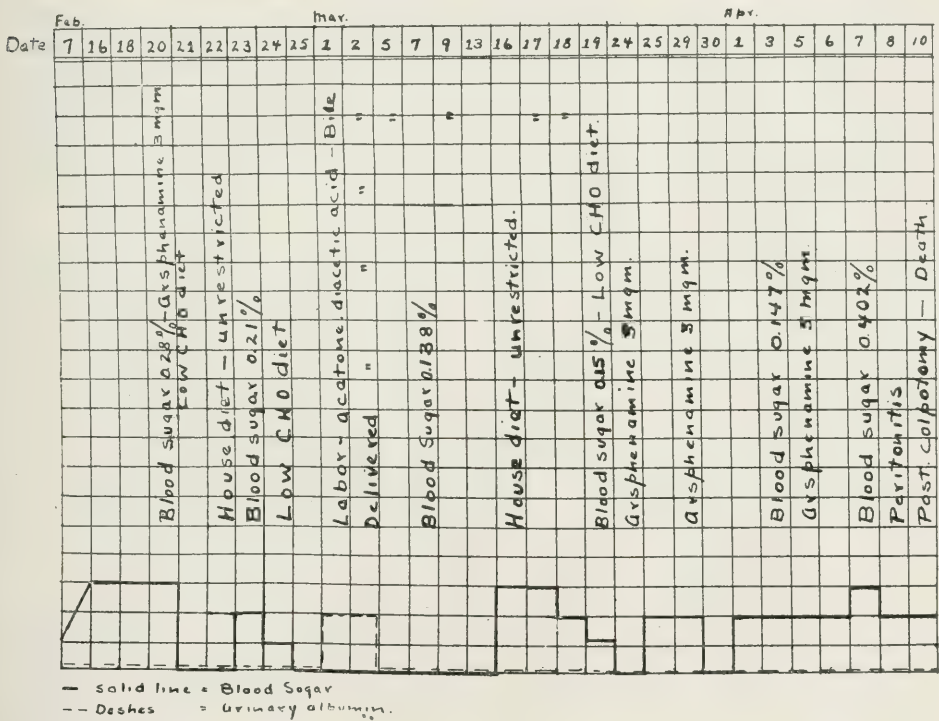 Feb. Mar. Apr.
Date 7 16 18 20 21 22 23 24 25 1 2 5 7 9 13 16 17 18 19 24 25 29 30 1 3 5 6 7 8 10
Blood sugar 0.28%-Arsphenamine 3 mgm
Low CHO diet
House diet - unrestricted
Blood sugar 0.21%
Low CHO diet
Labor - acetone. diacetic acid - Bile
Delivered " " " "
"
Blood Sugar 0.138%
"
House diet - unrestricted.
"
"
Blood sugar 0.15% - Low CHO diet.
Arsphenamine 3 mgm.
Arsphenamine 3 mgm.
Blood sugar 0.147%
Arsphenamine 3 mgm
Blood sugar 0.402%
Peritonitis
Post. colpotomy - Death
— Solid line = Blood Sugar
-- Dashes = Urinary albumin.
"